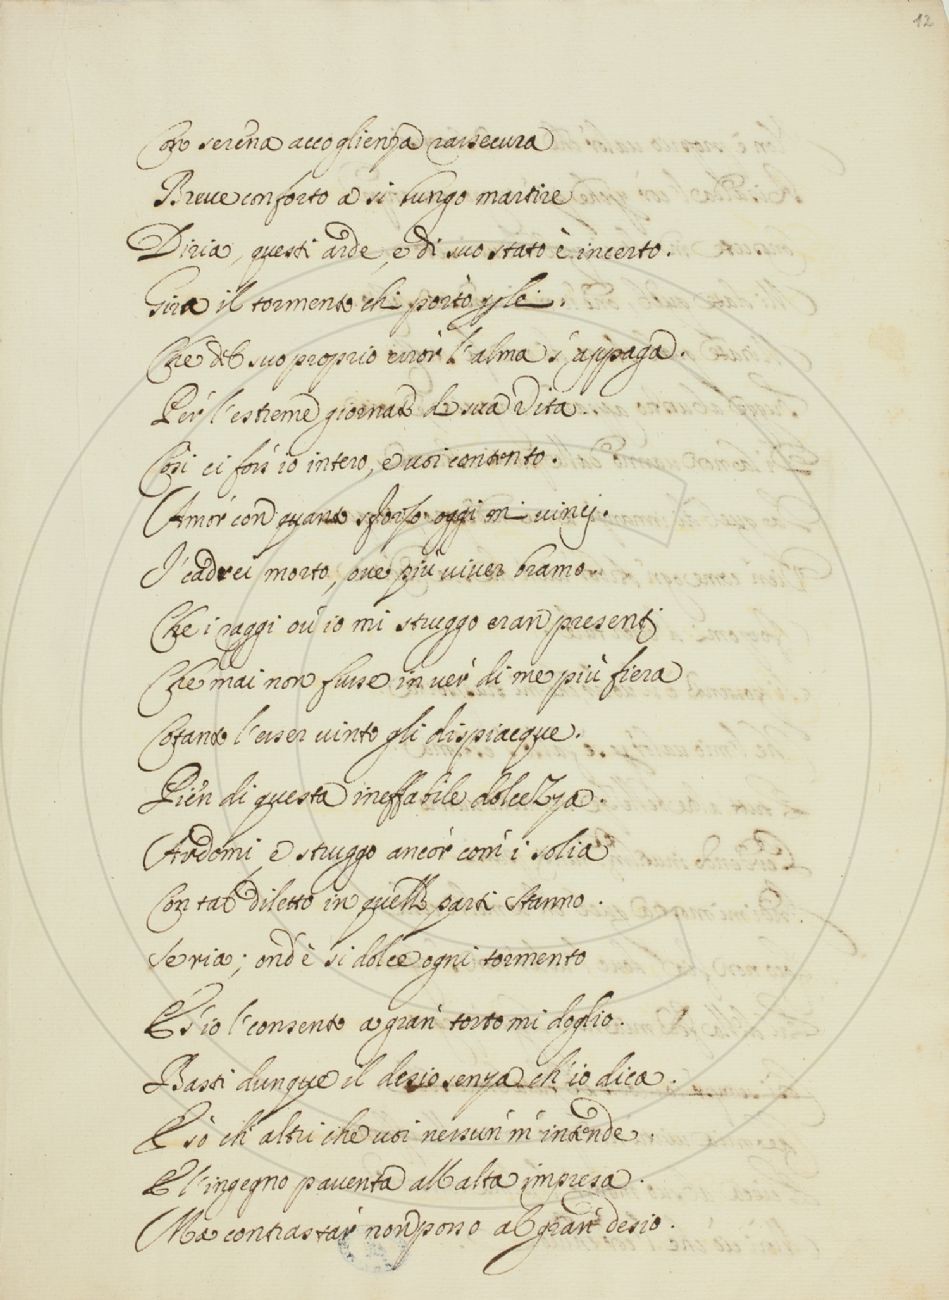 12
Con serena accoglienza rassecura
Breve conforto a sì lungo martire
Diria, questi arde, e di suo stato è incerto.
Gira il tormento ch'i porto
Che del suo proprio error l'alma s'appaga.
Per l'estreme giornate di sua vita
Così ci foss'io intero, e voi contento.
Amor con quanto sforzo oggi mi vinci.
I' cadrei morto, ove più viver bramo.
Che i raggi ov'io mi struggo eran presenti
Che mai non fusse inver' di me più fiera
Cotanto l'esser vinto gli dispiacque.
Pien di questa ineffabile dolcezza.
Ardomi, e struggo ancor com'i solia
Con tal diletto in quelle parti stanno.
Seria; ond'è sì dolce ogni tormento
E s'io l'consento a gran torto mi doglio.
Basti dunque il desio senza ch'io dica.
E sò ch'altri che voi nessun m'intende.
E l'ingegno paventa all'alta impresa.
Ma contrastar non posso al gran desio.